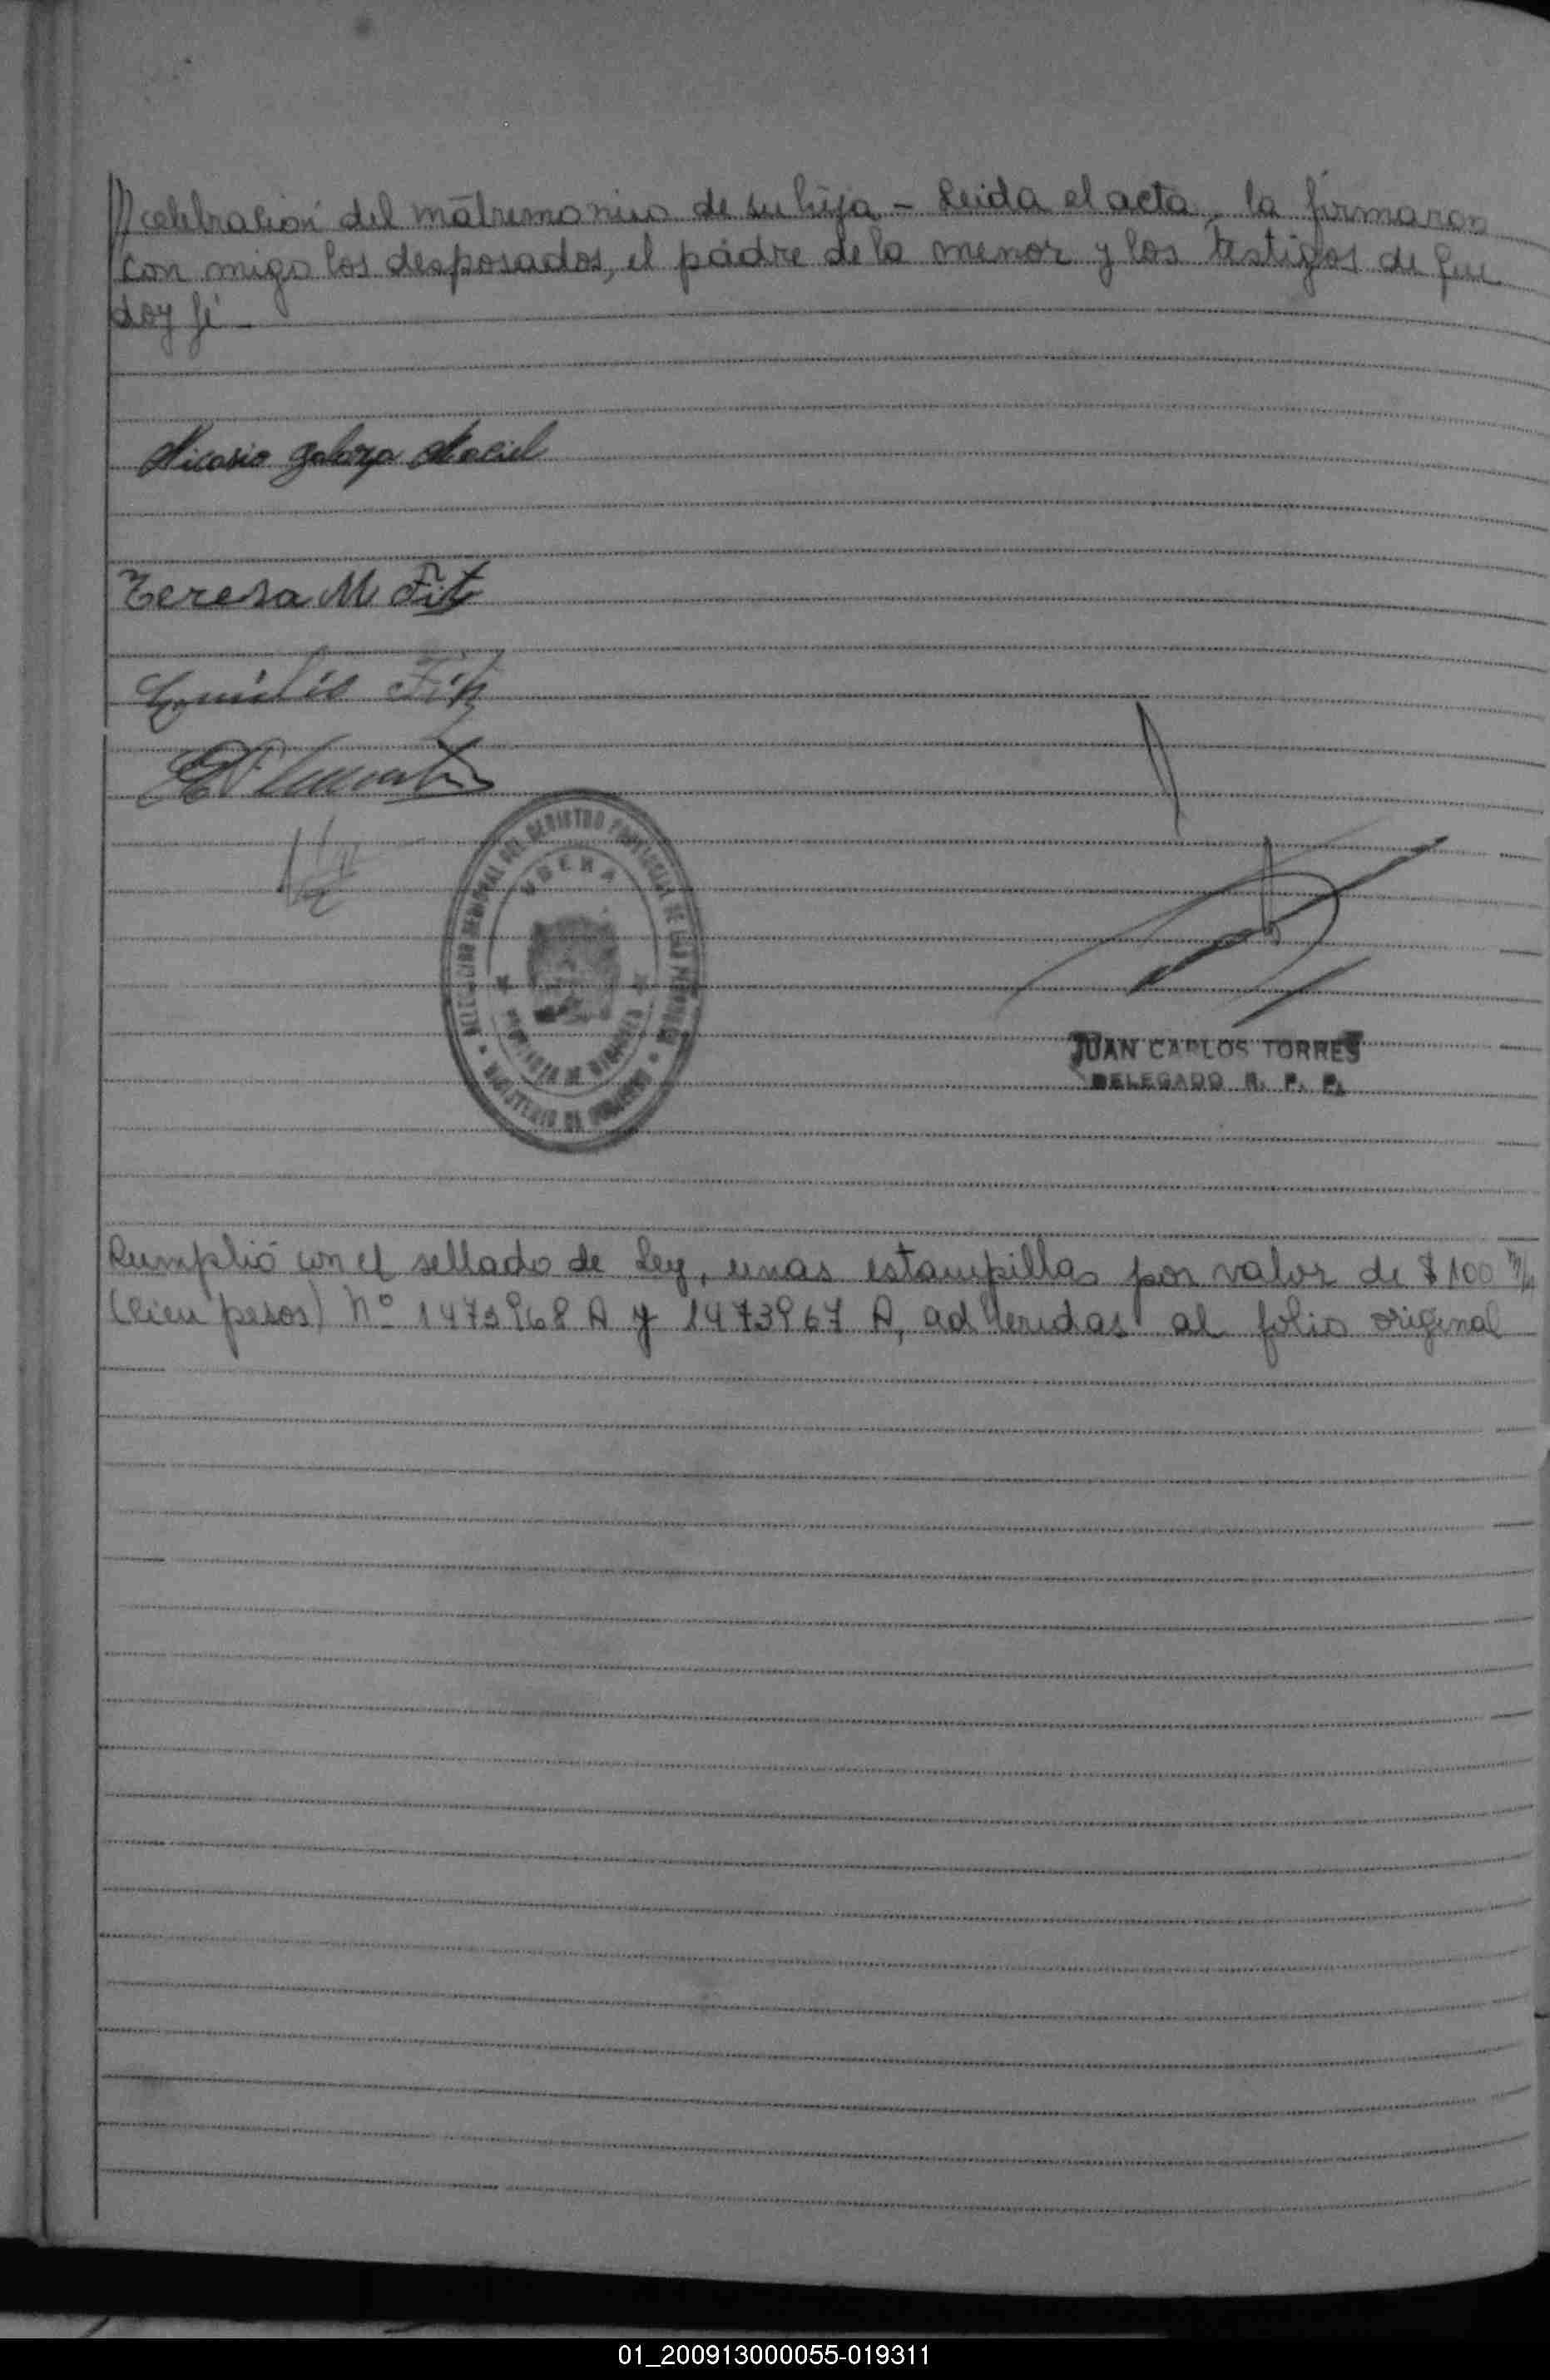 // celebración del matrimonio de su hija - Leida el acta, la firmaron
con migo los desposados, el padre de la menor y los testigos de que
doy fé -
Nicasio Galarza Maciel
Teresa M Fit
Emilio
DELEGACION SECCIONAL DEL REGISTRO PROVINCIAL DE LAS PERSONAS
UBERA
PROVINCIA DE MISIONES
MINISTERIO DE GOBIERNO
JUAN CARLOS TORRES
DELEGADO R. P. P.
Kumplió con el sellado de Ley, unas estampillas por valor de $ 100 m/n
(Cien pesos) Nº 1473968 A y 1473967 A, adheridas al folio original
01_200913000055-019311